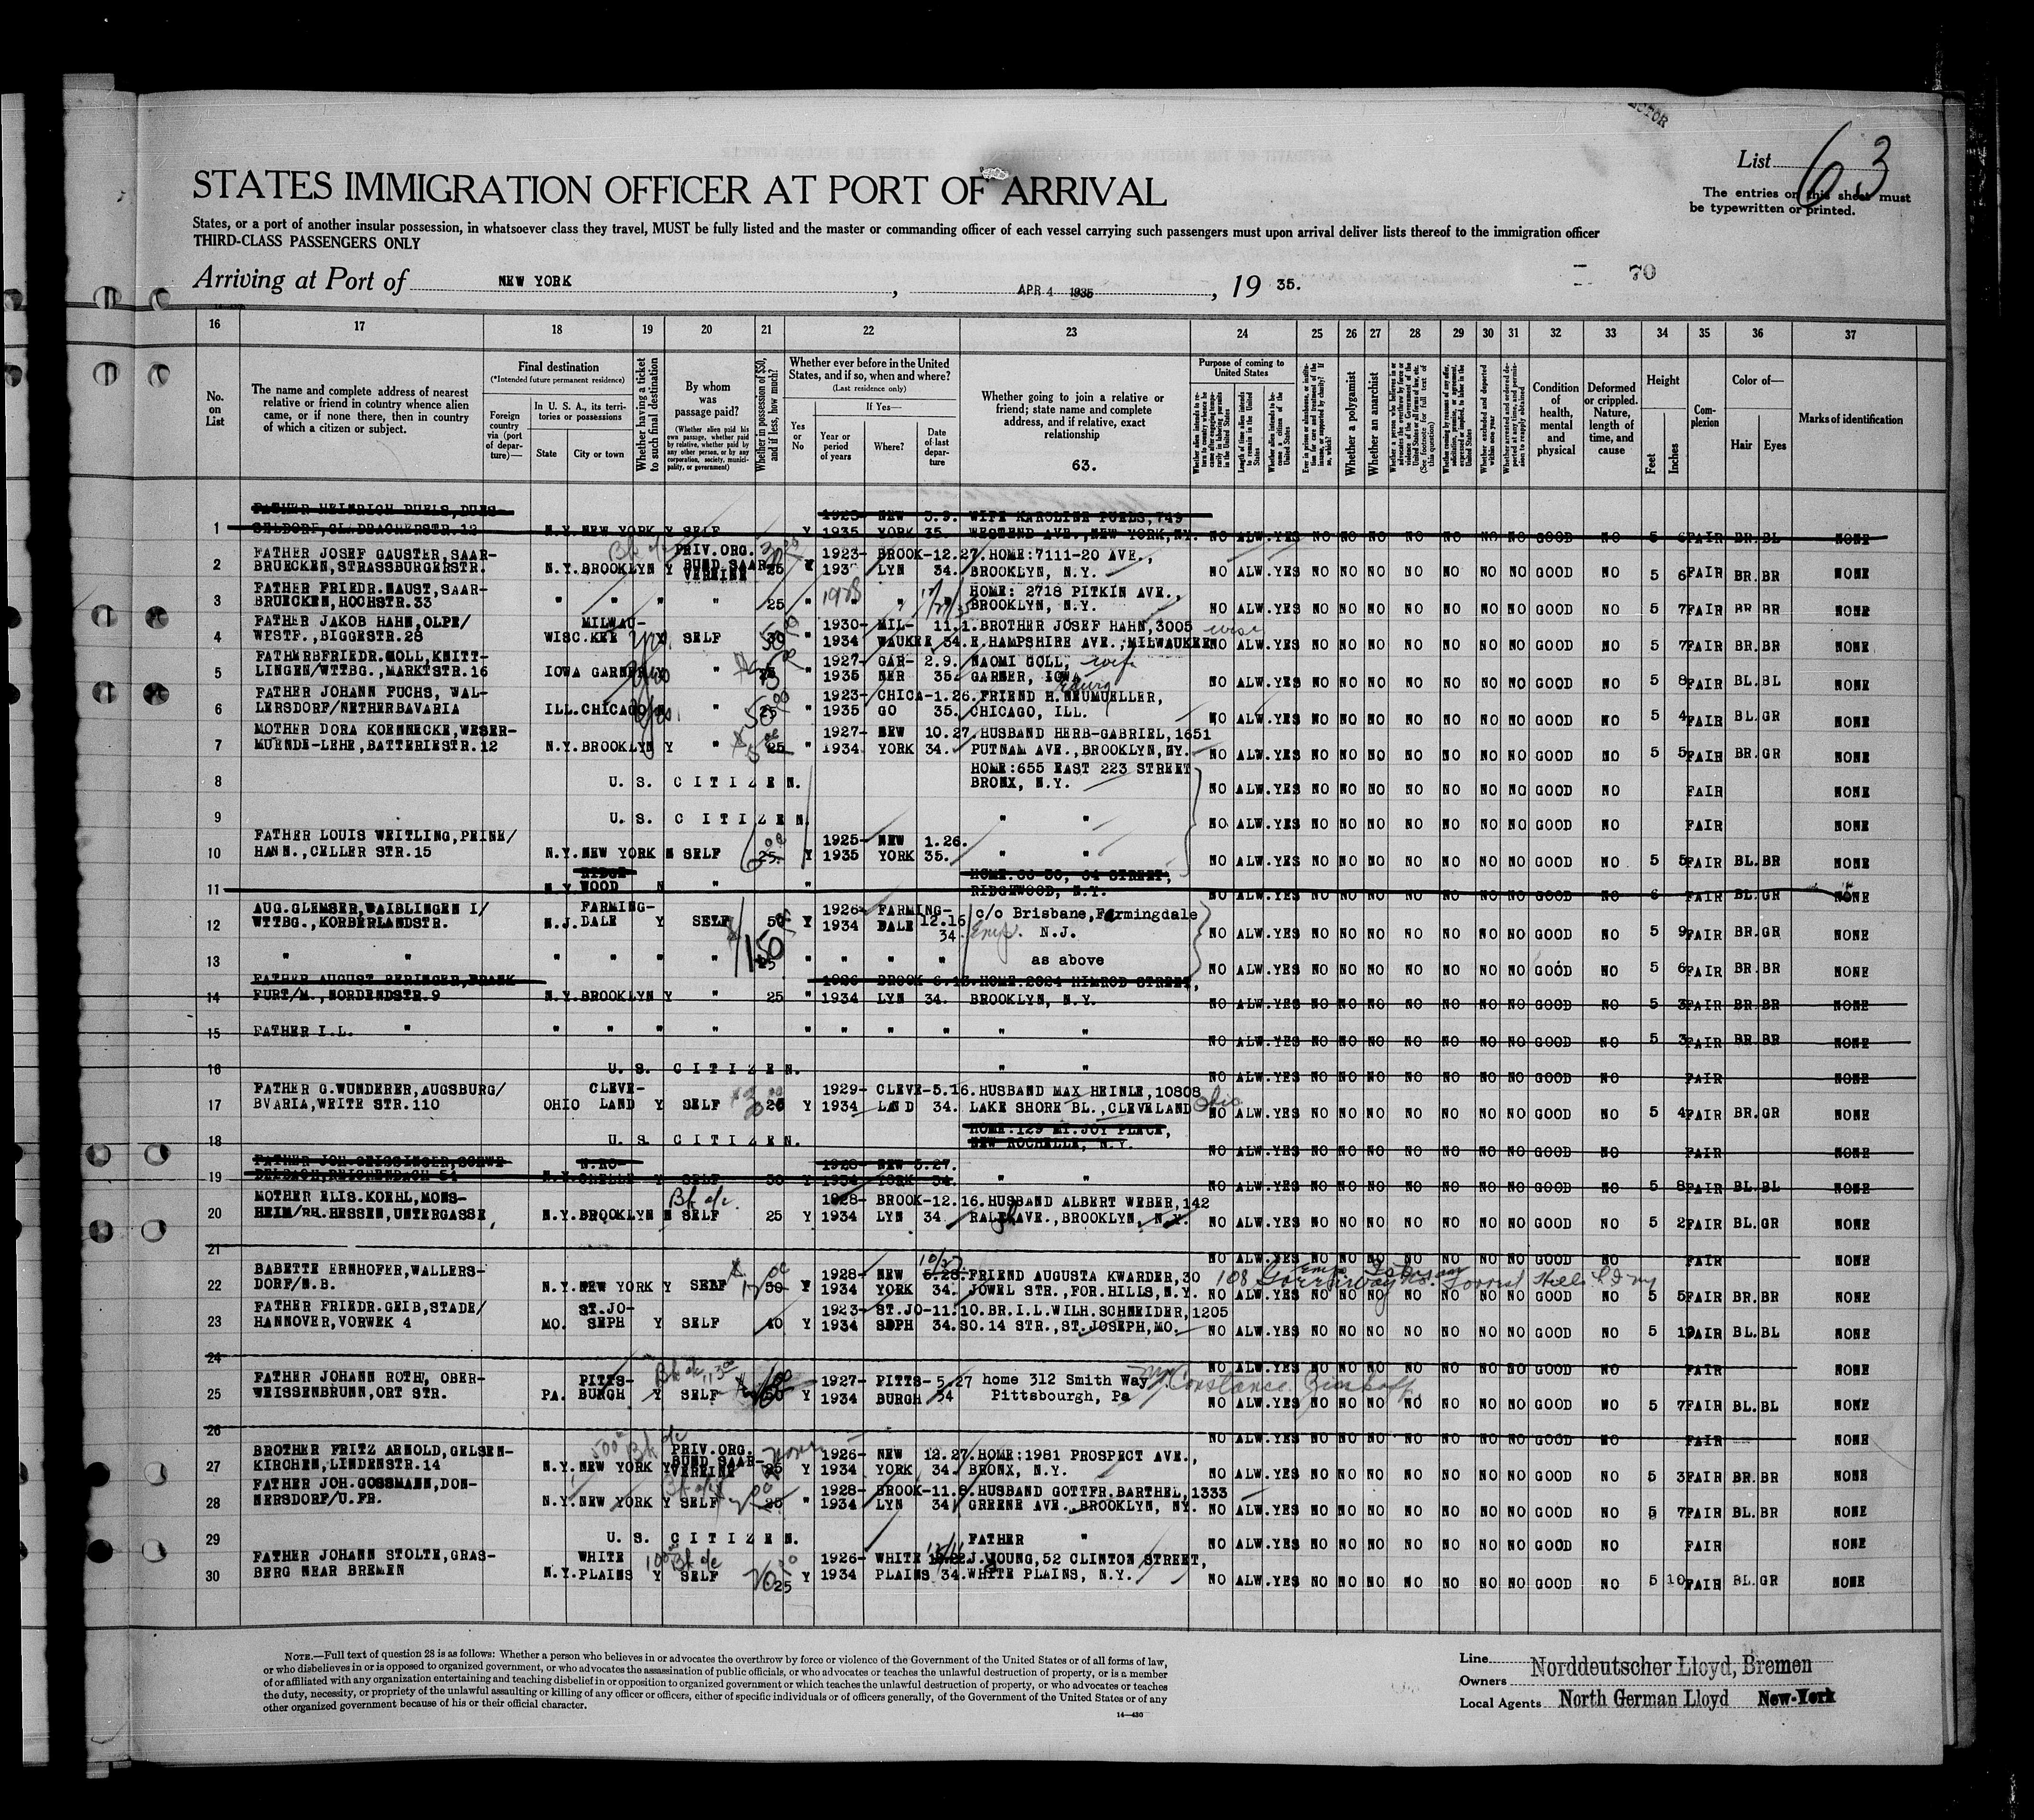 List 63
STATES IMMIGRATION OFFICER AT PORT OF ARRIVAL
The entries on this sheet must
be typewritten or printed.
States, or a port of another insular possession, in whatsoever class they travel, MUST be fully listed and the master or commanding officer of each vessel carrying such passengers must upon arrival deliver lists thereof to the immigration officer
THIRD-CLASS PASSENGERS ONLY
Arriving at Port of NEW YORK , APR 4 1935 , 19 35.
70
16 17 18 19 20 21 22 23 24 25 26 27 28 29 30 31 32 33 34 35 36 37
No. on List
The name and complete address of nearest relative or friend in country whence alien came, or if none there, then in country of which a citizen or subject.
Final destination
(*Intended future permanent residence)
Foreign country via (port of departure)—
In U. S. A., its territories or possessions
State
City or town
Whether having a ticket to such final destination
By whom was passage paid?
(Whether alien paid his own passage, whether paid by relative, whether paid by any other person, or by any corporation, society, municipality, or government)
Whether in possession of $50, and if less, how much?
Whether ever before in the United States, and if so, when and where?
(Last residence only)
Yes or No
If Yes—
Year or period of years
Where?
Date of last departure
Whether going to join a relative or friend; state name and complete address, and if relative, exact relationship
63.
Purpose of coming to United States
Whether a polygamist
Whether an anarchist
Condition of health, mental and physical
Deformed or crippled. Nature, length of time, and cause
Height
Feet
Inches
Complexion
Color of—
Hair
Eyes
Marks of identification
1 N.Y. NEW YORK Y SELF Y 1935 YORK 35. WESTEND AVE., NEW YORK, NY. NO ALW. YES NO NO NO NO NO NO NO GOOD NO 5 6 FAIR BR. BL NONE
FATHER JOSEF GAUSTER, SAAR- PRIV. ORG. 1923- BROOK- 12.27. HOME: 7111-20 AVE.,
2 BRUECKEN, STRASSBURGERSTR. N.Y. BROOKLYN Y BUND SAAR VEREINE 25 Y 1934 LYN 34. BROOKLYN, N.Y. NO ALW. YES NO NO NO NO NO NO NO GOOD NO 5 6 FAIR BR. BR NONE
FATHER FRIEDR. NAUST, SAAR- 1928 HOME: 2718 PITKIN AVE.,
3 BRUECKEN, HOCHSTR. 33 " " " " 25 " " " BROOKLYN, N.Y. NO ALW. YES NO NO NO NO NO NO NO GOOD NO 5 7 FAIR BR BR NONE
FATHER JAKOB HAHN, OLPE/ MILWAU- 1930- MIL- 11.1. BROTHER JOSEF HAHN, 3005
4 WESTF., BIGGESTR. 28 WISC. KEE SELF 30 " 1934 WAUKEE 34. E. HAMPSHIRE AVE., MILWAUKEE NO ALW. YES NO NO NO NO NO NO NO GOOD NO 5 7 FAIR BR. BR NONE
FATHER FRIEDR. GOLL, KNITT- 1927- GAR- 2.9. NAOMI GOLL, wife
5 LINGEN/WTTBG., MARKTSTR. 16 IOWA GARNER " " 1935 NER 35. GARNER, IOWA NO ALW. YES NO NO NO NO NO NO NO GOOD NO 5 8 FAIR BL. BL NONE
FATHER JOHANN FUCHS, WAL- 1923- CHICA- 1.26. FRIEND H. NEUMUELLER,
6 LERSDORF/NETHERBAVARIA ILL. CHICAGO " 25 " 1935 GO 35. CHICAGO, ILL. NO ALW. YES NO NO NO NO NO NO NO GOOD NO 5 4 FAIR BL. GR NONE
MOTHER DORA KOENNECKE, WESER- 1927- NEW 10.27. HUSBAND HERB-GABRIEL, 1651
7 MUENDE-LEHE, BATTERIESTR. 12 N.Y. BROOKLYN Y " 25 " 1934 YORK 34. PUTNAM AVE., BROOKLYN, NY. NO ALW. YES NO NO NO NO NO NO NO GOOD NO 5 5 FAIR BR. GR NONE
HOME: 655 EAST 223 STREET
8 U. S. CITIZEN. BRONX, N.Y. NO ALW. YES NO NO NO NO NO NO NO GOOD NO FAIR NONE
9 U. S. CITIZEN. " " NO ALW. YES NO NO NO NO NO NO NO GOOD NO FAIR NONE
FATHER LOUIS WEITLING, PEINE/ 1925- NEW 1.26.
10 HANN., CELLER STR. 15 N.Y. NEW YORK N SELF 25. Y 1935 YORK 35. " " NO ALW. YES NO NO NO NO NO NO NO GOOD NO 5 5 FAIR BL. BR NONE
11 N.Y. WOOD N " " RIDGEWOOD, N.Y. NO ALW. YES NO NO NO NO NO NO NO GOOD NO 6 FAIR BL. GR NONE
AUG. GLEMSER, WAIBLINGEN I/ FARMING- 1926- FARMING- c/o Brisbane, Farmingdale
12 WTTBG., KORBERLANDSTR. N.J. DALE Y SELF 50 Y 1934 DALE 12.16 34. N.J. NO ALW. YES NO NO NO NO NO NO NO GOOD NO 5 9 FAIR BR. GR NONE
13 " " " " " " " " " " as above NO ALW. YES NO NO NO NO NO NO NO GOOD NO 5 6 FAIR BR. BR NONE
FATHER AUGUST BERINGER, FRANK
14 FURT/M., NORDENDSTR. 9 N.Y. BROOKLYN Y " 25 " 1934 LYN 34. BROOKLYN, N.Y. NO ALW. YES NO NO NO NO NO NO NO GOOD NO 5 3 FAIR BR. BR NONE
15 FATHER I.L. " " " " " " " " " " " NO ALW. YES NO NO NO NO NO NO NO GOOD NO 5 3 FAIR BR. BR NONE
16 U. S. CITIZEN. " " NO ALW. YES NO NO NO NO NO NO NO GOOD NO FAIR NONE
FATHER G. WUNDERER, AUGSBURG/ CLEVE- 1929- CLEVE- 5.16. HUSBAND MAX HEINLE, 10808
17 BVARIA, WEITE STR. 110 OHIO LAND Y SELF 25 Y 1934 LAND 34. LAKE SHORE BL., CLEVELAND Ohio NO ALW. YES NO NO NO NO NO NO NO GOOD NO 5 4 FAIR BR. GR NONE
HOME: 129 MT. JOY PLACE,
18 U. S. CITIZEN. NEW ROCHELLE, N.Y. NO ALW. YES NO NO NO NO NO NO NO GOOD NO FAIR NONE
19 SELF 30 Y 1934 YORK 34. " " NO ALW. YES NO NO NO NO NO NO NO GOOD NO 5 8 FAIR BL. BL NONE
MOTHER ELIS. KOEHL, MONS- 1928- BROOK- 12.16. HUSBAND ALBERT WEBER, 142
20 HEIM/RH. HESSEN, UNTERGASSE, N.Y. BROOKLYN N SELF 25 Y 1934 LYN 34. RALPH AVE., BROOKLYN, N.Y. NO ALW. YES NO NO NO NO NO NO NO GOOD NO 5 2 FAIR BL. GR NONE
21 NO ALW. YES NO NO NO NO NO NO NO GOOD NO FAIR NONE
BABETTE ERNHOFER, WALLERS- 1928- NEW 5.23. FRIEND AUGUSTA KWARDER, 30
22 DORF/N.B. N.Y. NEW YORK Y SELF 50 Y 1934 YORK 34. JOWEL STR., FOR. HILLS, N.Y. NO ALW. YES NO NO NO NO NO NO NO GOOD NO 5 5 FAIR BR. BR NONE
FATHER FRIEDR. GEIB, STADE/ ST. JO- 1923- ST. JO- 11.10. BR. I.L. WILH. SCHNEIDER, 1205
23 HANNOVER, VORWEK 4 MO. SEPH Y SELF 40 Y 1934 SEPH 34. SO. 14 STR., ST. JOSEPH, MO. NO ALW. YES NO NO NO NO NO NO NO GOOD NO 5 FAIR BL. BL NONE
24 NO ALW. YES NO NO NO NO NO NO NO GOOD NO FAIR NONE
FATHER JOHANN ROTH, OBER- PITTS- 1927- PITTS- 5.27 home 312 Smith Way
25 WEISSENBRUNN, ORT STR. PA. BURGH Y SELF 50 Y 1934 BURGH 34 Pittsbourgh, Pa NO ALW. YES NO NO NO NO NO NO NO GOOD NO 5 7 FAIR BL. BL NONE
26 NO ALW. YES NO NO NO NO NO NO NO GOOD NO FAIR NONE
BROTHER FRITZ ARNOLD, GELSEN- PRIV. ORG. 1926- NEW 12.27. HOME: 1981 PROSPECT AVE.,
27 KIRCHEN, LINDENSTR. 14 N.Y. NEW YORK Y BUND SAAR- VEREINE 25 Y 1934 YORK 34. BRONX, N.Y. NO ALW. YES NO NO NO NO NO NO NO GOOD NO 5 3 FAIR BR. BR NONE
FATHER JOH. GOSSMANN, DON- 1928- BROOK- 11.8. HUSBAND GOTTFR. BARTHEL, 1333
28 NERSDORF/U. FR. N.Y. NEW YORK Y SELF 25 " 1934 LYN 34 GREENE AVE., BROOKLYN, NY. NO ALW. YES NO NO NO NO NO NO NO GOOD NO 5 7 FAIR BL. BR NONE
29 U. S. CITIZEN. FATHER " NO ALW. YES NO NO NO NO NO NO NO GOOD NO FAIR NONE
FATHER JOHANN STOLTE, GRAS- WHITE 1926- WHITE J. YOUNG, 52 CLINTON STREET,
30 BERG NEAR BREMEN N.Y. PLAINS Y SELF 25 Y 1934 PLAINS 34. WHITE PLAINS, N.Y. NO ALW. YES NO NO NO NO NO NO NO GOOD NO 5 10 FAIR BL. GR NONE
NOTE.—Full text of question 28 is as follows: Whether a person who believes in or advocates the overthrow by force or violence of the Government of the United States or of all forms of law,
or who disbelieves in or is opposed to organized government, or who advocates the assassination of public officials, or who advocates or teaches the unlawful destruction of property, or is a member
of or affiliated with any organization entertaining and teaching disbelief in or opposition to organized government or which teaches the unlawful destruction of property, or who advocates or teaches
the duty, necessity, or propriety of the unlawful assaulting or killing of any officer or officers, either of specific individuals or of officers generally, of the Government of the United States or of any
other organized government because of his or their official character.
14—430
Line
Owners Norddeutscher Lloyd, Bremen
Local Agents North German Lloyd New-York